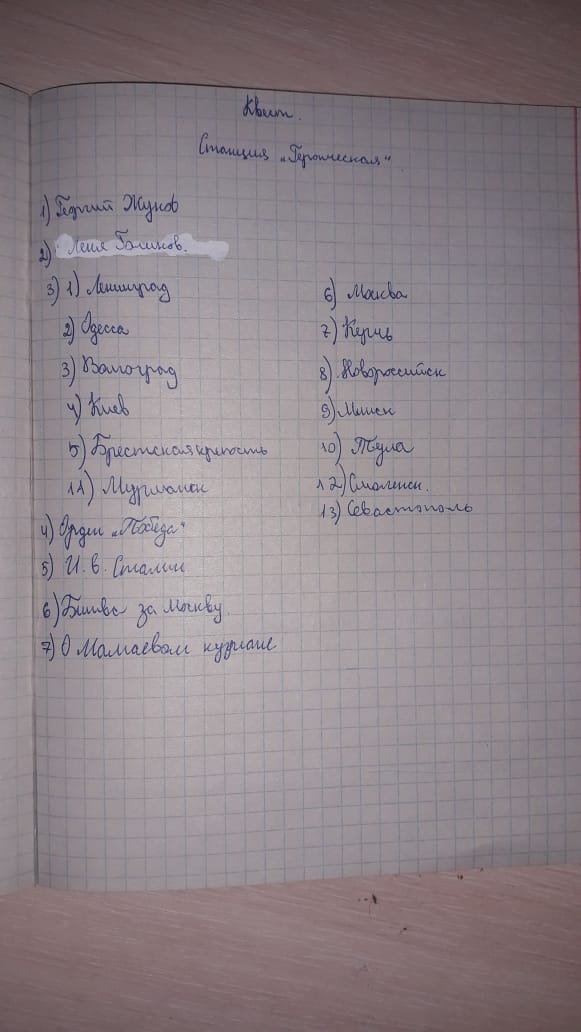 Квест.
Станция „Героическая"
1) Георгий Жуков
2) Леня Голиков.
3) 1) Ленинград
2) Одесса
3) Волгоград
4) Киев
5) Брестская крепость
11) Мурманск
6) Москва
7) Керчь
8) Новороссийск
9) Минск
10) Тула
12) Смоленск.
13) Севастополь
4) Орден „Победа"
5) И. В. Сталин
6) Битва за Москву.
7) О Мамаевом кургане